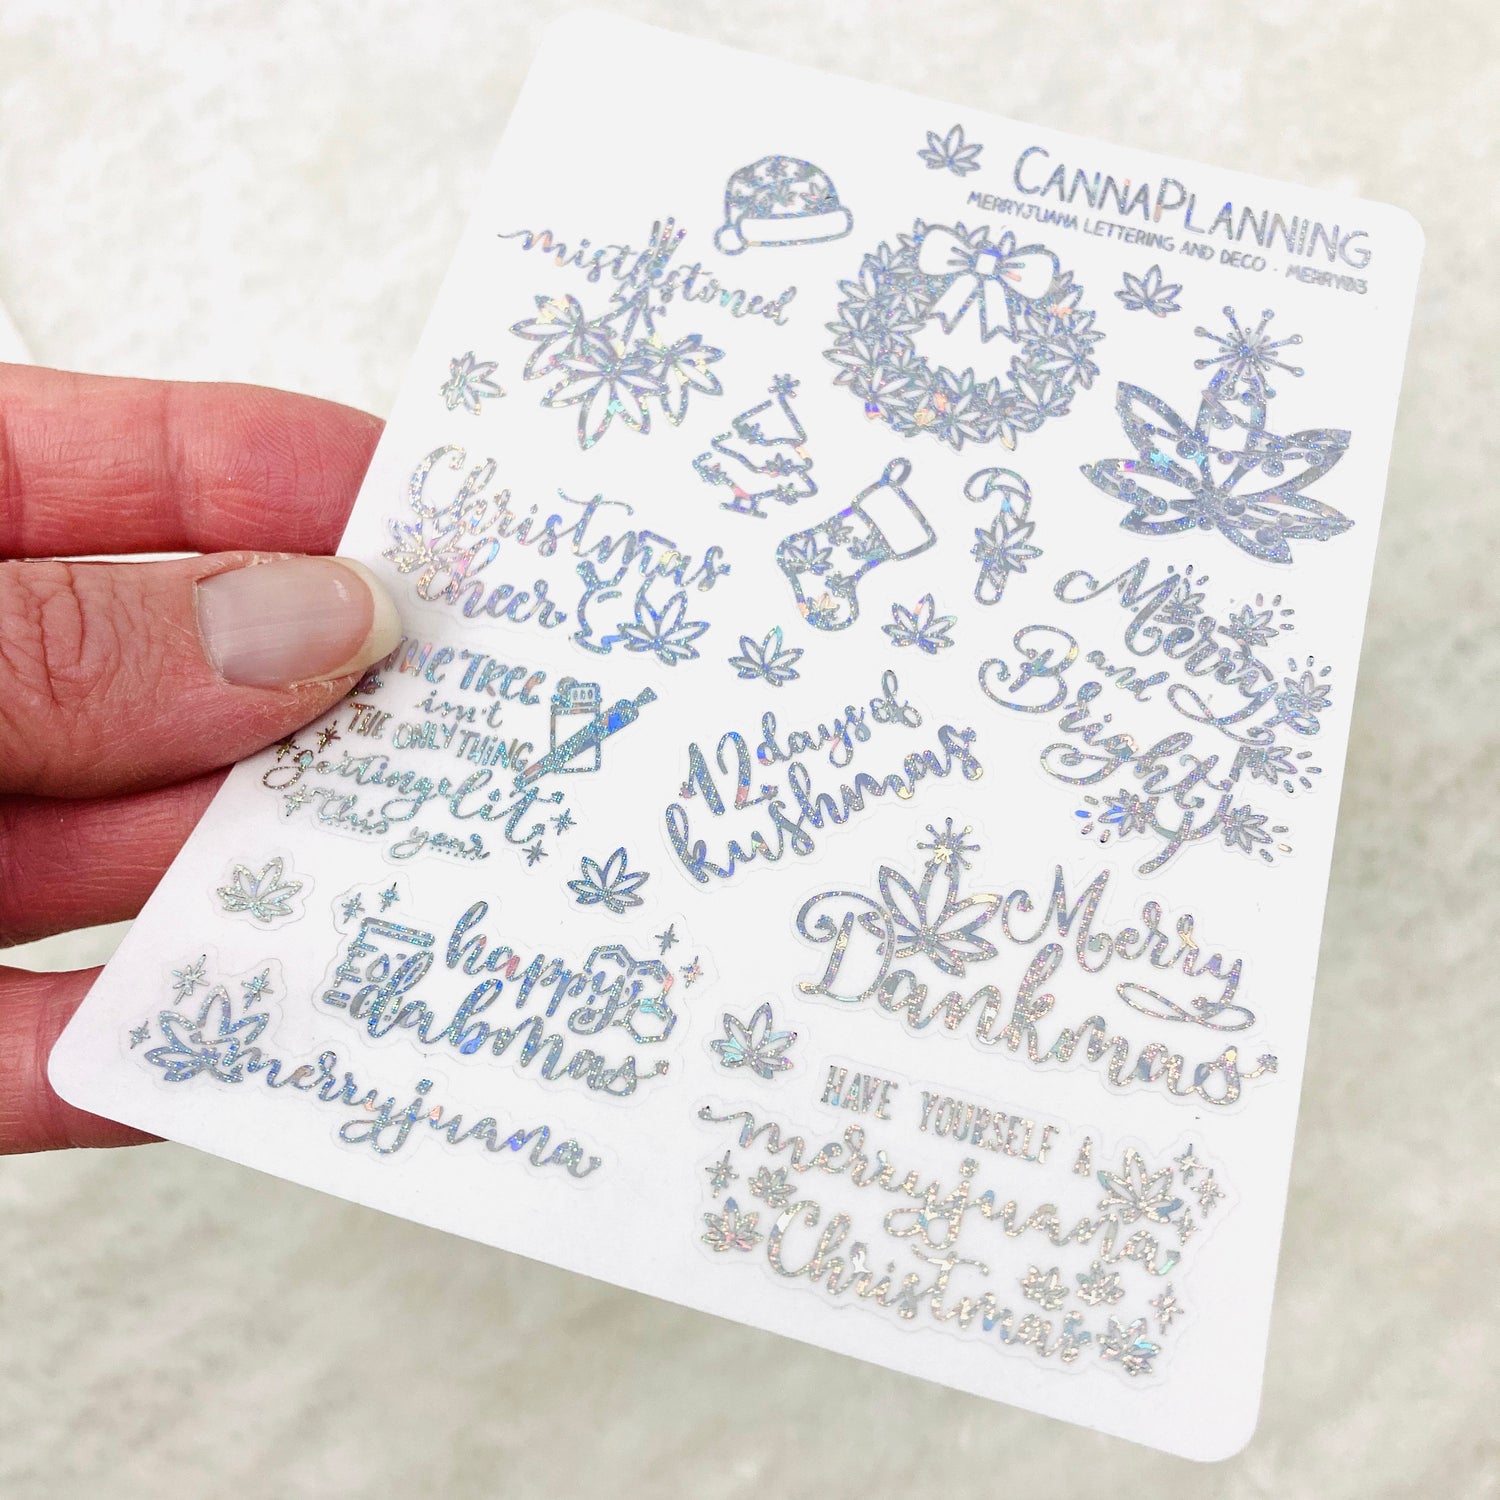 CANNAPLANNING
MERRYJUANA LETTERING AND DECO · MERRY03
mistlestoned
Christmas
cheer
THE TREE
isn't
THE ONLY THING
getting lit
this year
12 days of
kushmas
Merry
and
Bright
happy
dabmas
Merry
Dankmas
merryjuana
HAVE YOURSELF A
merryjuana
Christmas